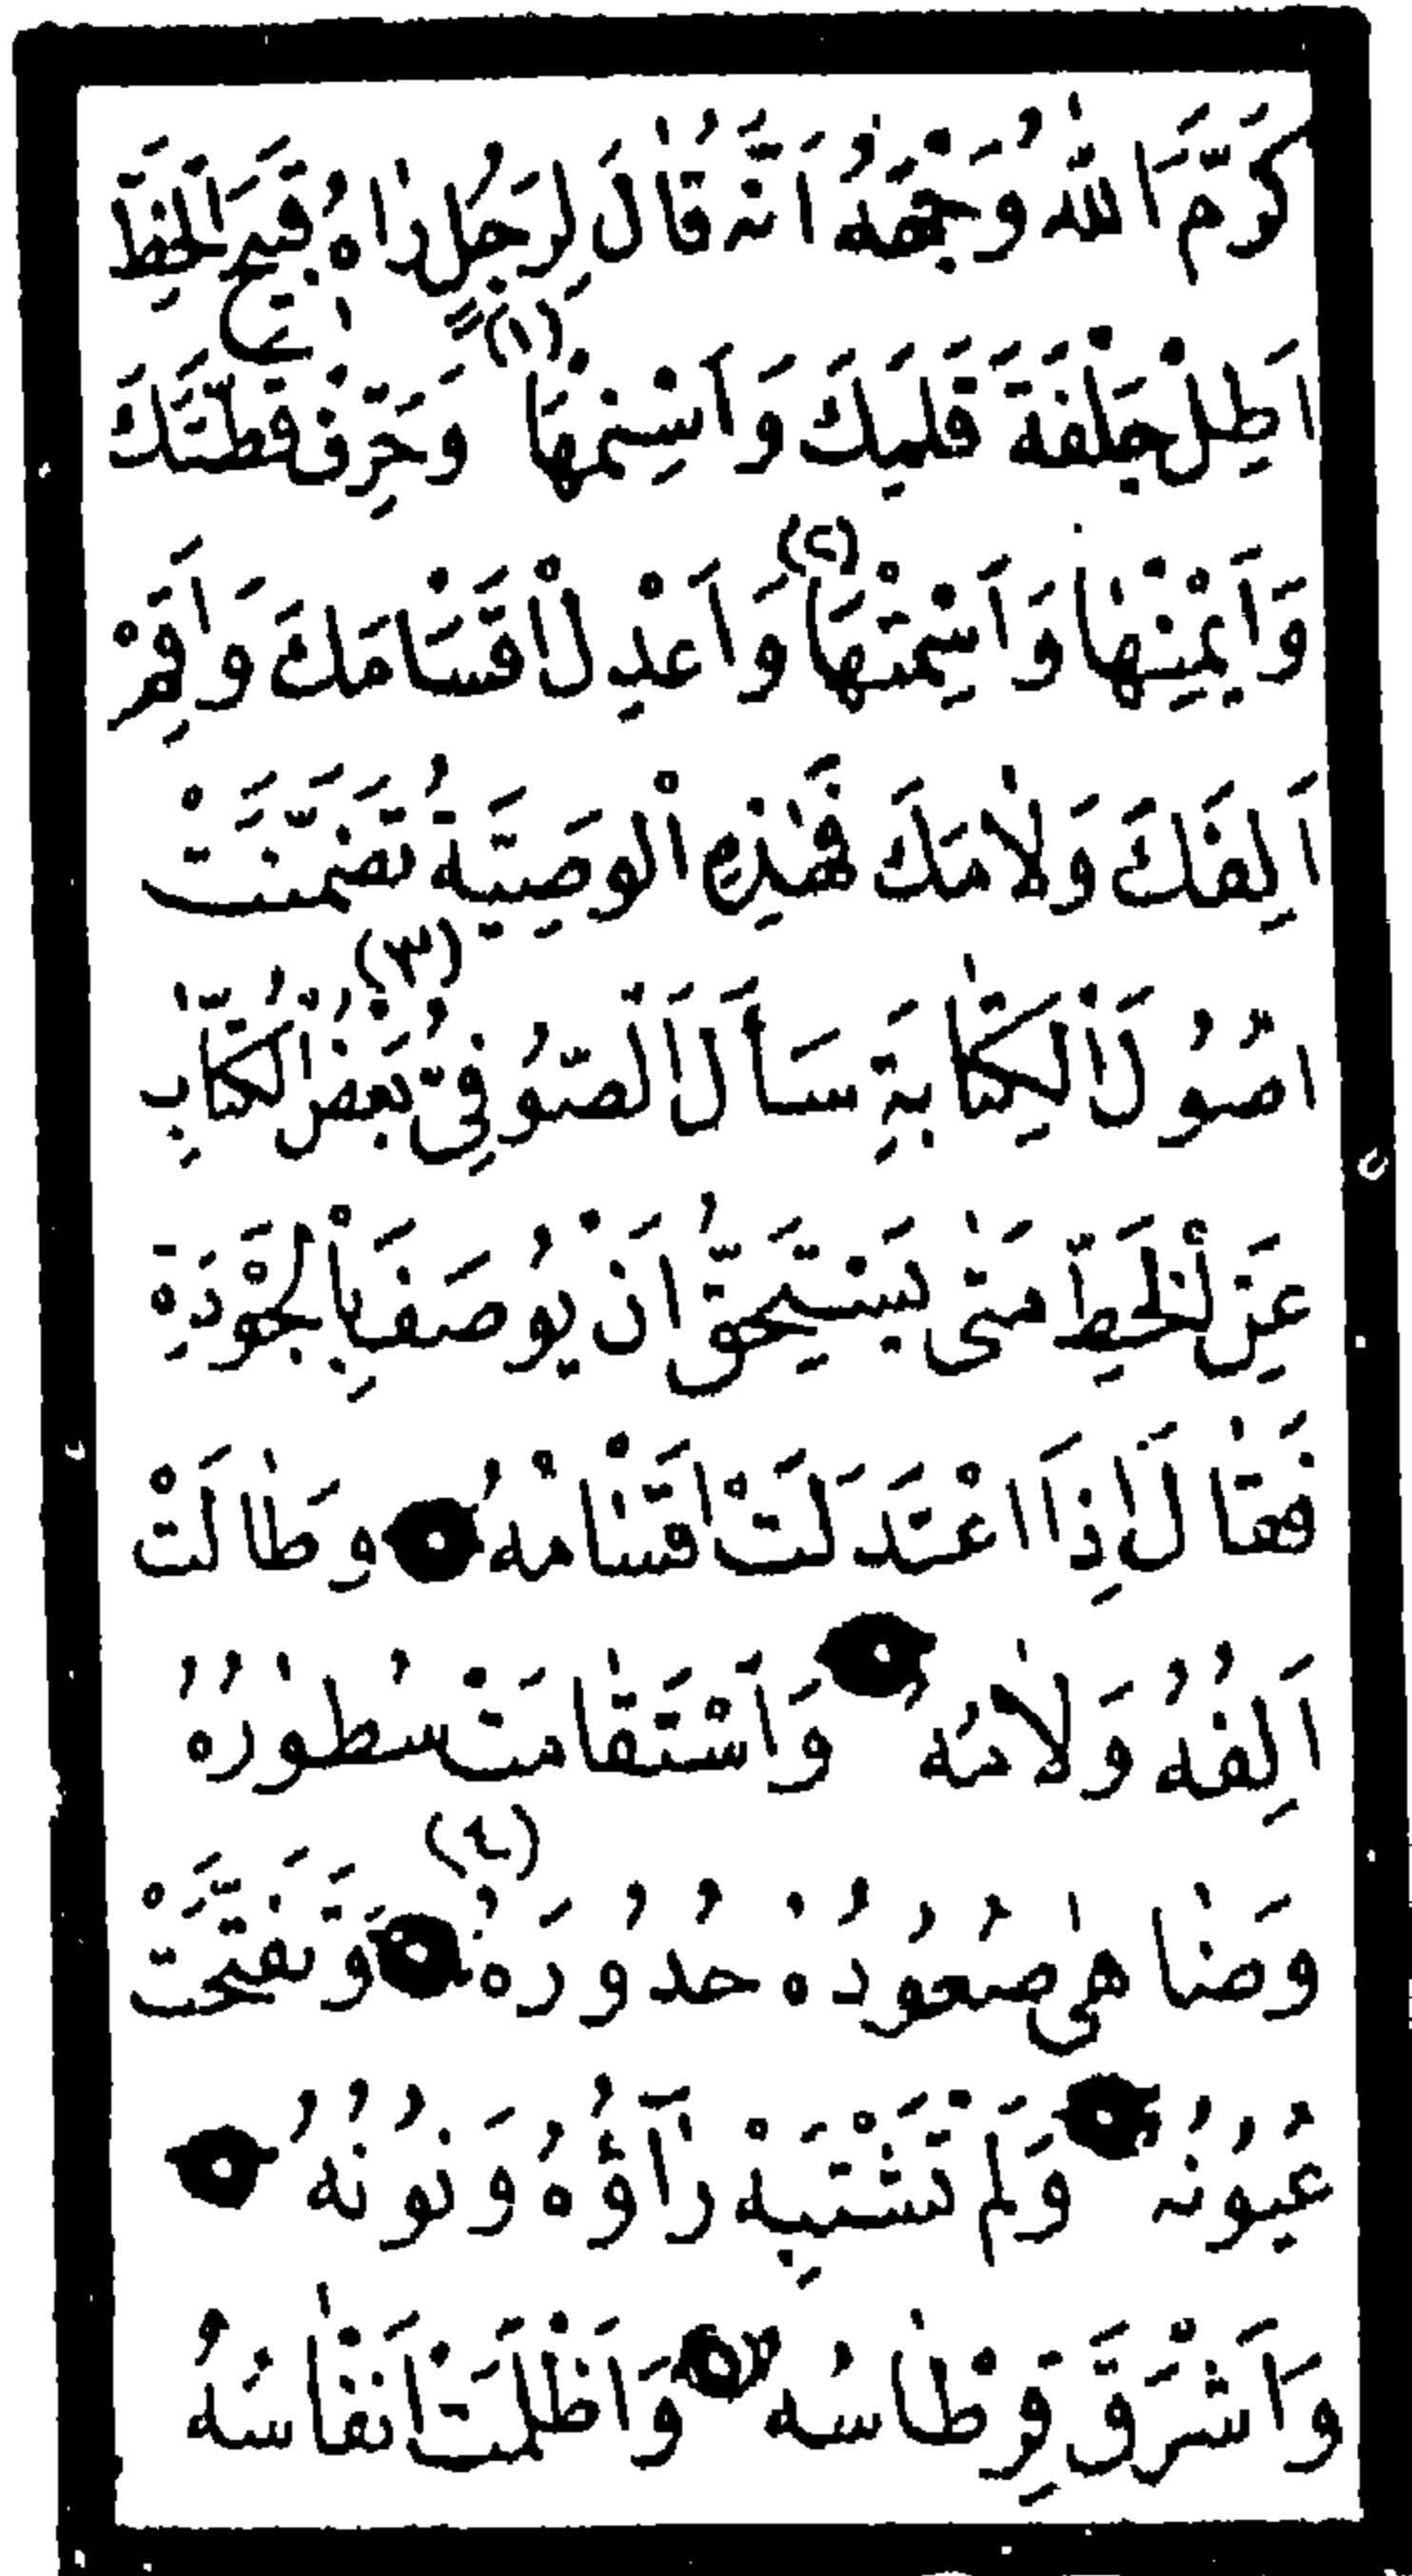 كَرَّمَ اللهُ وَجْهَهُ اَنَّهُ قَالَ لِرَجُلٍ رَاٰهُ قَبِيحَ الْخَطِّ
اَطِلْ جَلْفَةَ قَلَمِكَ وَاَسْمِنْهَا (١) وَحَرِّفْ قَطَّتَكَ
وَاَيْمِنْهَا وَاَسْمِتْهَا (٢) وَاَعْدِلْ اَقْسَامَكَ وَاَقِمْ
اَلِفَكَ وَلَامَكَ فَهٰذِهِ الْوَصِيَّةُ تَضَمَّنَتْ
اُصُولَ الْكِتَابَةِ سَأَلَ الصُّوفِيُّ (٣) بَعْضُ الْكُتَّابِ
عَنِ الْخَطِّ مَتٰى يَسْتَحِقُّ اَنْ يُوصَفَ بِالْجَوْدَةِ
فَقَالَ اِذَا اعْتَدَلَتْ اَقْسَامُهُ وَطَالَتْ
اَلِفُهُ وَلَامُهُ وَاسْتَقَامَتْ سُطُورُهُ
وَضَاهٰى صُعُودُهُ حُدُورَهُ (٤) وَتَفَتَّحَتْ
عُيُونُهُ وَلَمْ تَشْتَبِهْ رَآؤُهُ وَنُونُهُ
وَاَشْرَقَ قِرْطَاسُهُ وَاَظْلَمَتْ اَنْفَاسُهُ